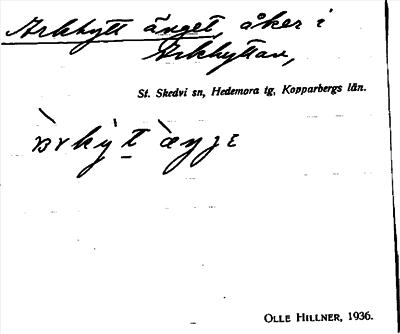 Arkhytt änget, åker i
Arkhyttan,
St. Skedvi sn, Hedemora tg, Kopparbergs län.
OLLE HILLNER, 1936.